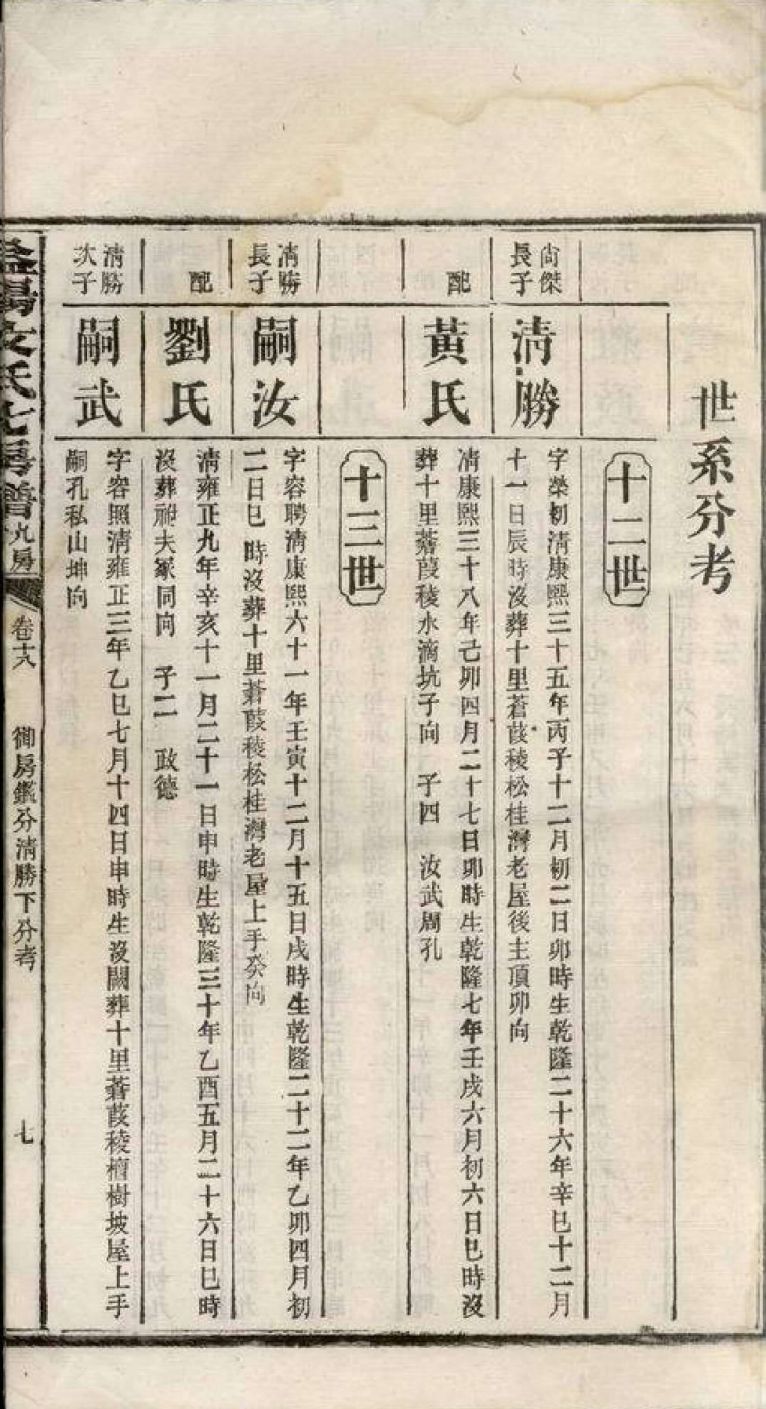 世系分考
十二世
尙傑
長子
清勝
字榮初清康熙三十五年丙子十二月初二日卯時生乾隆二十六年辛巳十二月
十一日辰時沒葬十里蒼葭稜松桂灣老屋後主頂卯向
配
黃氏
清康熙三十八年己卯四月二十七日卯時生乾隆七年壬戌六月初六日巳時沒
葬十里蒼葭稜水滴坑子向 子四 汝武周孔
十三世
清勝
長子
嗣汝
字容聘清康熙六十一年壬寅十二月十五日戌時生乾隆二十二年乙卯四月初
二日巳 時沒葬十里蒼葭稜松桂灣老屋上手癸向
配
劉氏
清雍正九年辛亥十一月二十一日申時生乾隆三十年乙酉五月二十六日巳時
沒葬祔夫冢同向 子二 政德
清勝
次子
嗣武
字容照清雍正三年乙巳七月十四日申時生沒闕葬十里蒼葭稜檀樹坡屋上手
嗣孔私山坤向
益陽文氏七房譜九房
卷十八
御房鑑分清勝下分考
七